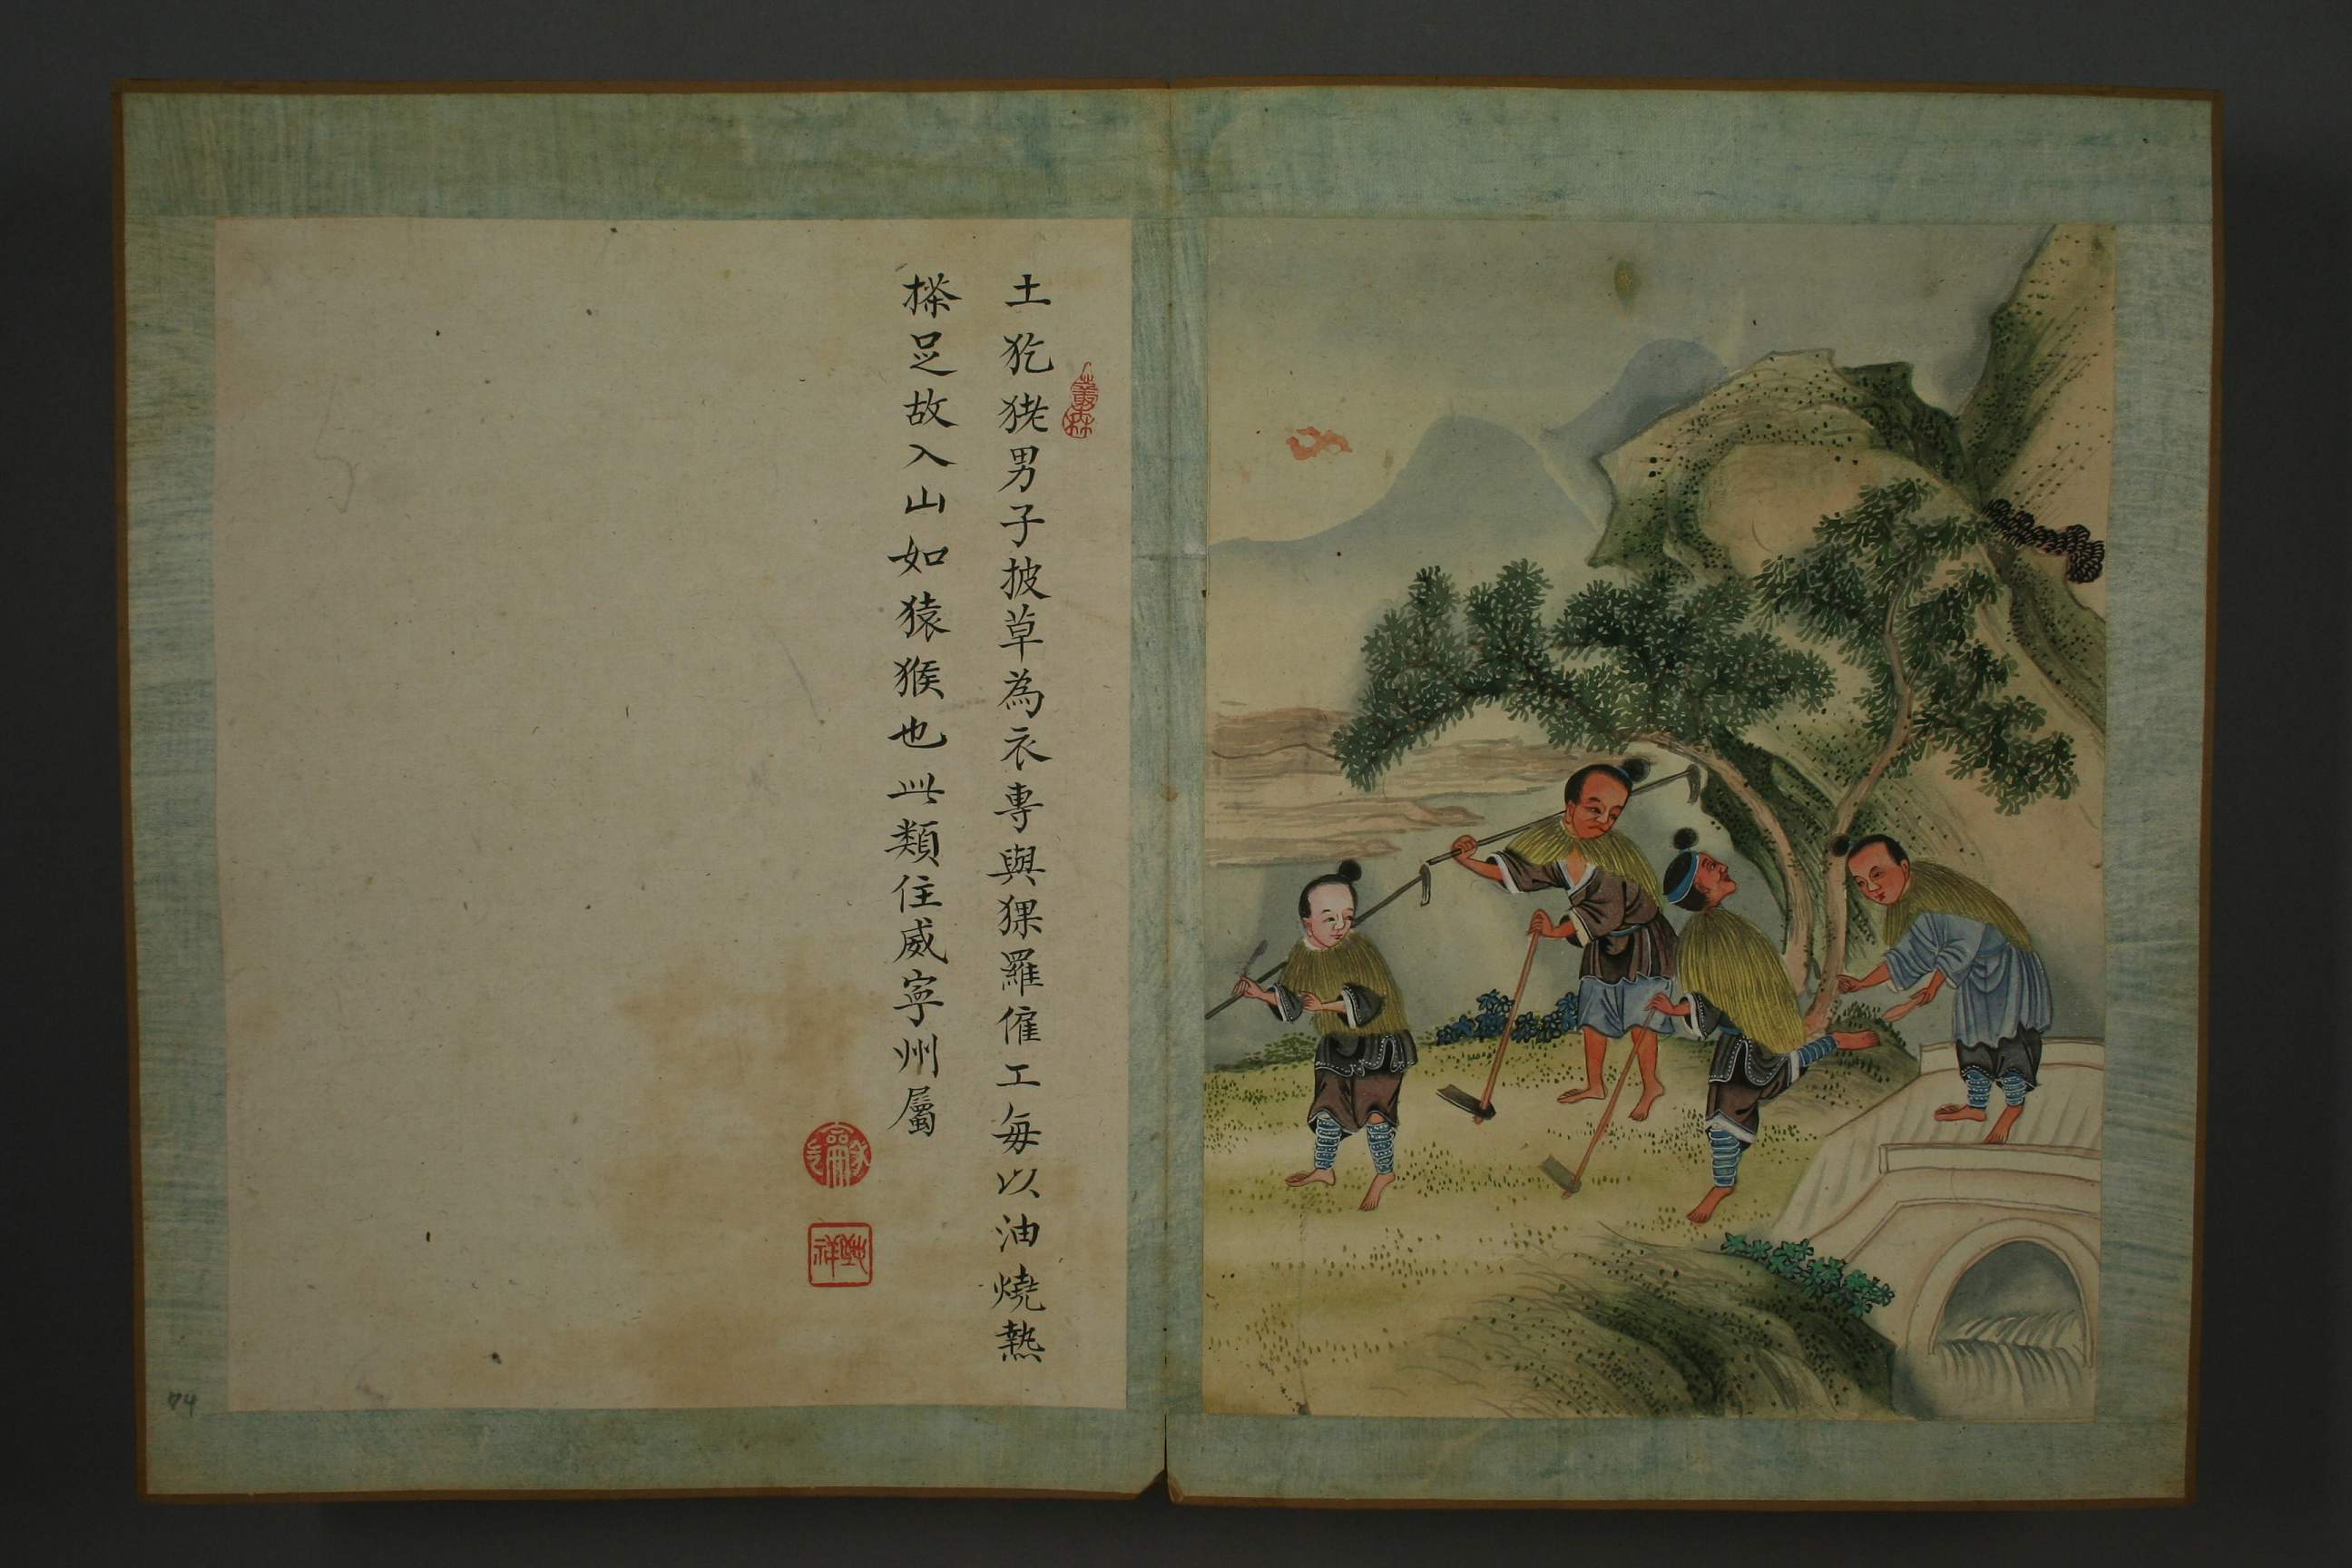 土犵狫男子披草為衣專與猓羅僱工每以油燒熱
搽足故入山如猿猴也此類住威寧州屬
74